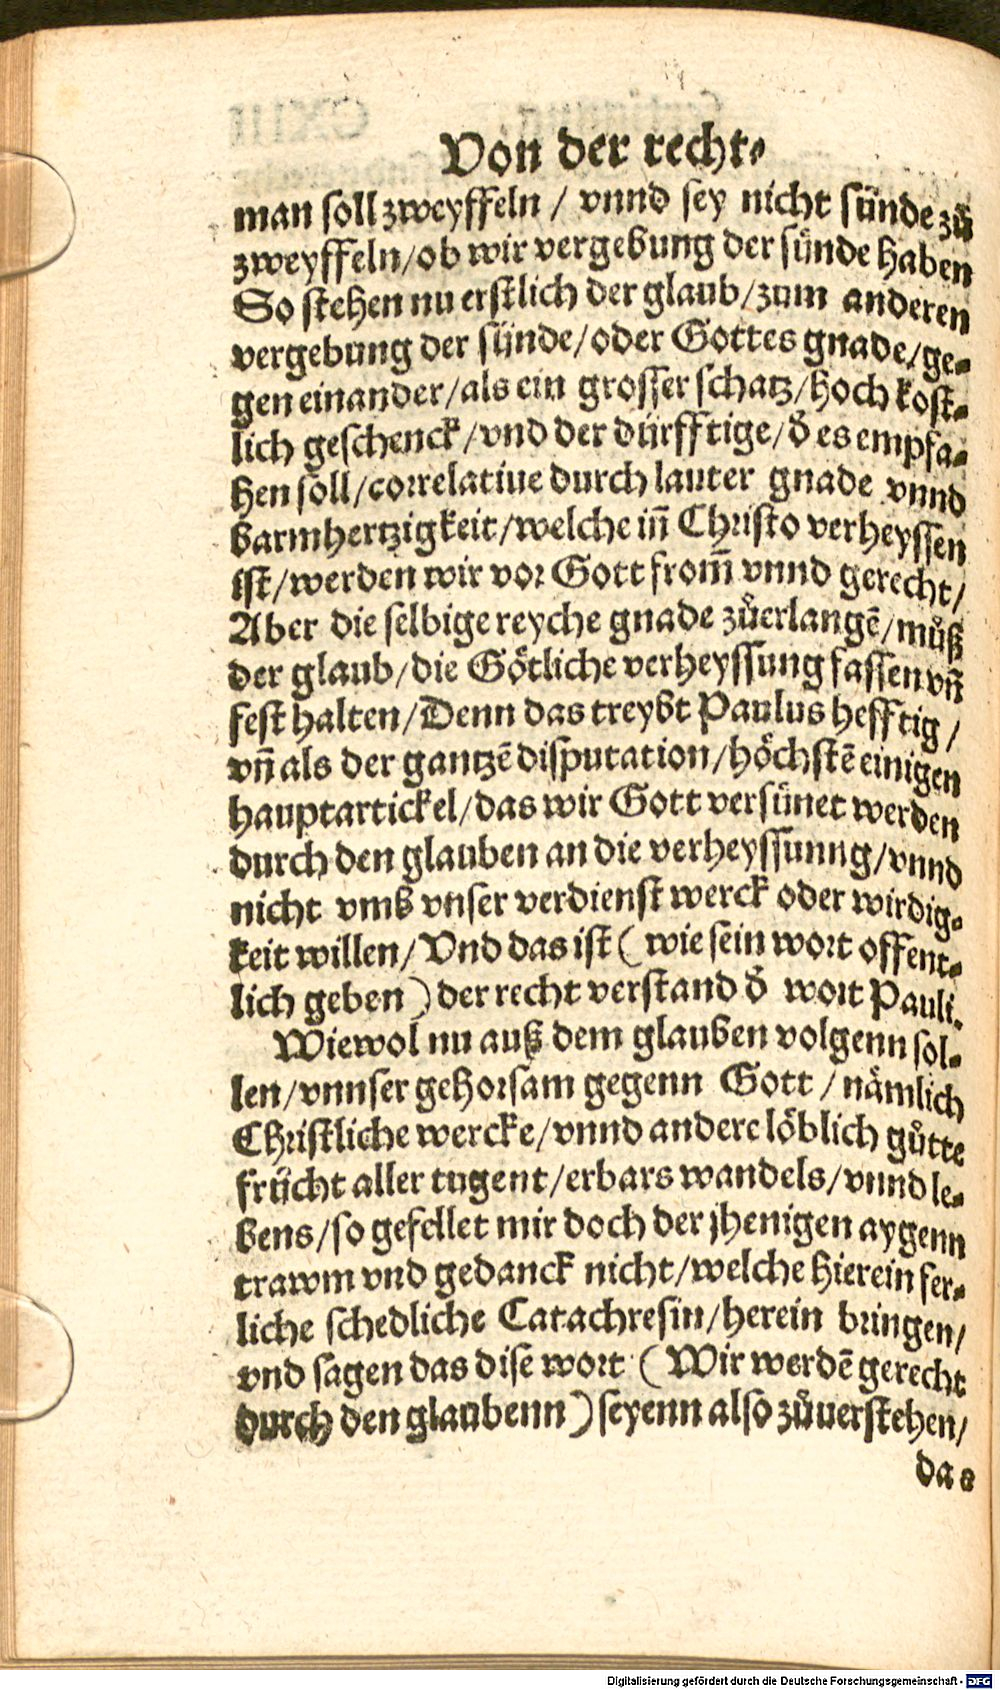 Von der recht⸗
man soll zweyffeln / vnnd sey nicht sünde zů
zweyffeln/ob wir vergebung der sünde haben
So stehen nu erstlich der glaub/zum anderen
vergebung der sünde/oder Gottes gnade/ge⸗
gen einander/als ein grosser schatz/hoch kost⸗
lich geschenck/vnd der dürfftige/d̕ es empfa⸗
hen soll/correlatiue durch lauter gnade vnnd
barmhertzigkeit/welche in̄ Christo verheyssen
ist/werden wir vor Gott from̄ vnnd gerecht/
Aber die selbige reyche gnade zůerlangē/můß
der glaub/die Götliche verheyssung fassen vn̄
fest halten/Denn das treybt Paulus hefftig/
vn̄ als der gantzē disputation/höchstē einigen
hauptartickel/das wir Gott versünet werden
durch den glauben an die verheyssunng/vnnd
nicht vmb vnser verdienst werck oder wirdig⸗
keit willen/Vnd das ist ( wie sein wort offent⸗
lich geben ) der recht verstand d̕ wort Pauli.
Wiewol nu auß dem glauben volgenn sol⸗
len/vnnser gehorsam gegenn Gott / nämlich
Christliche wercke/vnnd andere löblich gůtte
frücht aller tugent/erbars wandels/vnnd le⸗
bens/so gefellet mir doch der jhenigen aygenn
trawm vnd gedanck nicht/welche hierein fer⸗
liche schedliche Catachresin/herein bringen/
vnd sagen das dise wort ( Wir werdē gerecht
durch den glaubenn ) seyenn also zůuerstehen/
das
Digitalisierung gefördert durch die Deutsche Forschungsgemeinschaft - DFG